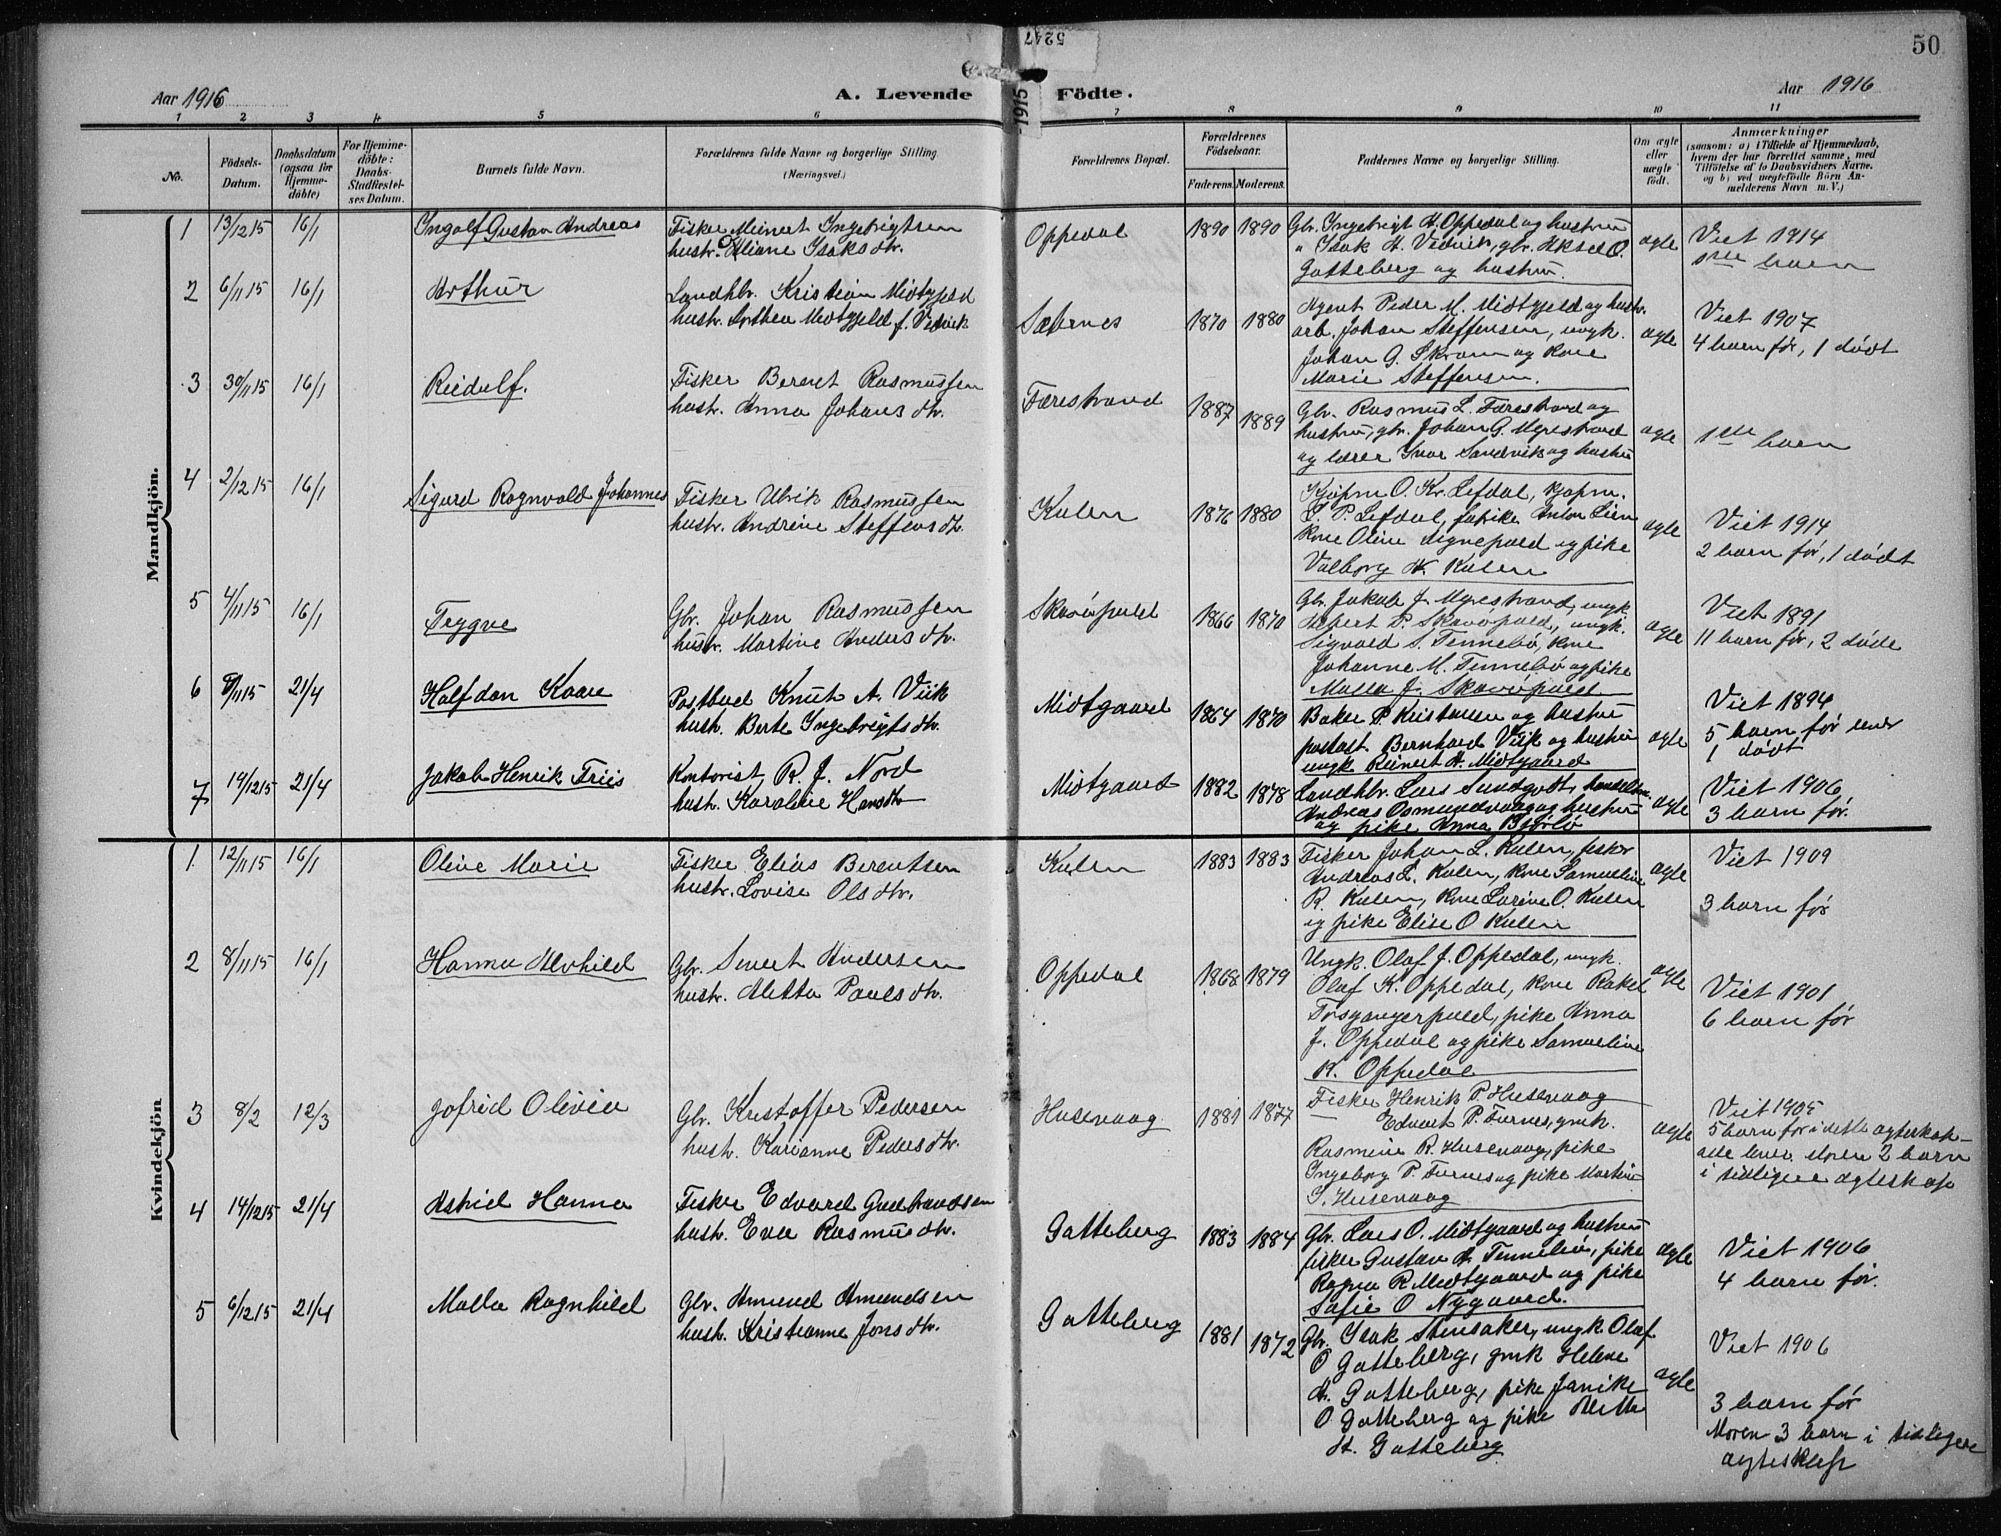 5247
50
1915
Aar 1916
A. Levende Födte.
Aar 1916
1 2 3 4 5 6 7 8 9 10 11
No.
Födsels-Datum.
Daabsdatum (ogsaa for Hjemmedöbte)
For Hjemmedöbte: Daabs-Stadfæstelses Datum.
Barnets fulde Navn.
Forældrenes fulde Navne og borgerlige Stilling (Næringsvei.)
Forældrenes Bopæl.
Forældrenes Födselsaar.
Faderens. Moderens.
Faddernes Navne og borgerlige Stilling.
Om ægte eller uægte født.
Anmærkninger
(saasom: a) i Tilfælde af Hjemmedaab, hvem der har forrettet samme, med Tilføielse af to Daabsvidners Navne, og b) ved uægtefødte Börn Anmelderens Navn m. V.)
Mandkjön.
1 13/12 15 16/1 Ingolf Gustav Andreas
Fisker Meinert Ingebrigtsen
hustr. Eliane Isaksdtr.
Oppedal 1890 1890
Gbr. Ingebrigt A. Oppedal og hustru
" Isak A. Vedvik, gbr. Aksel O.
Gotteberg og hustru.
ægte
Viet 1914
1ste barn
2 6/11 15 16/1 Arthur
Landhbr. Kristian Midtgjeld
hustr. Dorthea Midtgjeld f. Vedvik
Sæternes 1870 1880
Agent Peder M. Midtgjeld og hustr.
arb. Johan Steffensen, ungk.
Johan G. Skram og kone
Marie Steffensen.
ægte
Viet 1907
4 barn før, 1 dødt
3 30/11 15 16/1 Reidulf.
Fisker Bernt Rasmussen
hustr. Anna Johansdtr.
Færestrand 1887 1889
Gbr. Rasmus L. Færestrand og
hustru, gbr. Johan G. Myrestrand
og lærer Ivar Sandvik og hustru
ægte
1ste barn
4 2/12 15 16/1 Sigurd Ragnvald Johannes
Fisker Ulrik Rasmussen
hustr. Andrine Steffensdtr.
Kulen 1876 1880
Kjøpm O. Kr. Lefdal, kjøpm.
L. P. Lefdal, Anton Lien
kone Oline og pike
Valborg A. Kulen
ægte
Viet 1914
2 barn før, 1 dødt
5 4/11 15 16/1 Trygve
Gbr. Johan Rasmussen
hustr. Martine Andersdtr.
Skavøpuld 1866 1870
Gbr. Jakob J. Myrestrand, ungk.
P. Skavøpold, ungk.
Sigvald S. Tennebø, kone
Johanne M. Tennebø og pike
Malla J. Skavøpold
ægte
Viet 1891
11 barn før, 2 døde
6 8/11 15 21/4 Halfdan Kaare
Postbud Knut A. Viik
hustr. Berte Ingebrigtsdtr.
Midtgaard 1864 1870
Baker P. Kristensen og hustru
postast. Bernhard Viik og hustru
ungk Reinert A. Midtgaard
ægte
Viet 1894
5 barn før
1 dødt
7 19/12 15 21/4 Jakob Henrik Friis
Kontorist R. J. Nord
hustr. Karoline Hansdtr
Midtgaard 1882 1878
Landhbr. Lars Sundgodt, handelsm.
Andreas Osmundsvaag og hustru
og pike Anna Bjørlo
ægte
Viet 1906
3 barn før.
Kvindekjön
1 12/11 15 16/1 Oline Marie
Fisker Elias Berentsen
hustr. Lovise Olsdtr.
Kulen 1883 1883
Fisker Johan L. Kulen, fisker
Andreas L. Kulen, kone Samueline
R. Kulen, kone Larine O. Kulen
og pike Elise O Kulen
ægte
Viet 1909
3 barn før
2 8/11 15 16/1 Hanna Alvhild
Gbr. Sivert Andersen
hustr. Aletta Paulsdtr.
Oppedal 1868 1879
Ungk. Olaf J. Oppedal, ungk.
Olaf K. Oppedal, kone Rakel
Torsgangerpuld, pike Anna
J. Oppedal og pike Samueline
K. Oppedal
ægte
Viet 1901
6 barn før
3 8/2 12/3 Jofrid Olivia
Gbr. Kristoffer Pedersen
hustr. Karianne Pedersdtr.
Husevaag 1881 1877
Fisker Henrik P. Husevaag
— Edvart P. Furnes, gmk.
Rasmine R. Husevaag, pike
Ingeborg P. Furnes og pike Martine
S. Husevaag
ægte
Viet 1905
5 barn før i dette ægteskap
alle lever. Moren 2 barn
i tidligere ægteskap
4 14/12 15 21/4 Astrid Hanna
Fisker Edvard Gudbrandsen
hustr. Eva Rasmusdtr.
Gotteberg 1883 1884
Gbr. Lars O. Midtgaard og hustru
fisker Gustav A. Tennebø, pike
Ragna R. Midtgaard og pike
Sofie O. Nygaard.
ægte
Viet 1906
4 barn før.
5 6/12 15 21/4 Malla Ragnhild
Gbr. Amund Amundsen
hustr. Kristianne Jonsdtr.
Gotteberg 1881 1872
Gbr. Isak Stensaker, ungk Olaf
O Gotteberg, gmk Helene
A. Gotteberg, pike Janike
O Gotteberg og pike Aletta
A. Gotteberg
ægte
Viet 1906
3 barn før
Moren 3 barn i tidligere
ægteskap